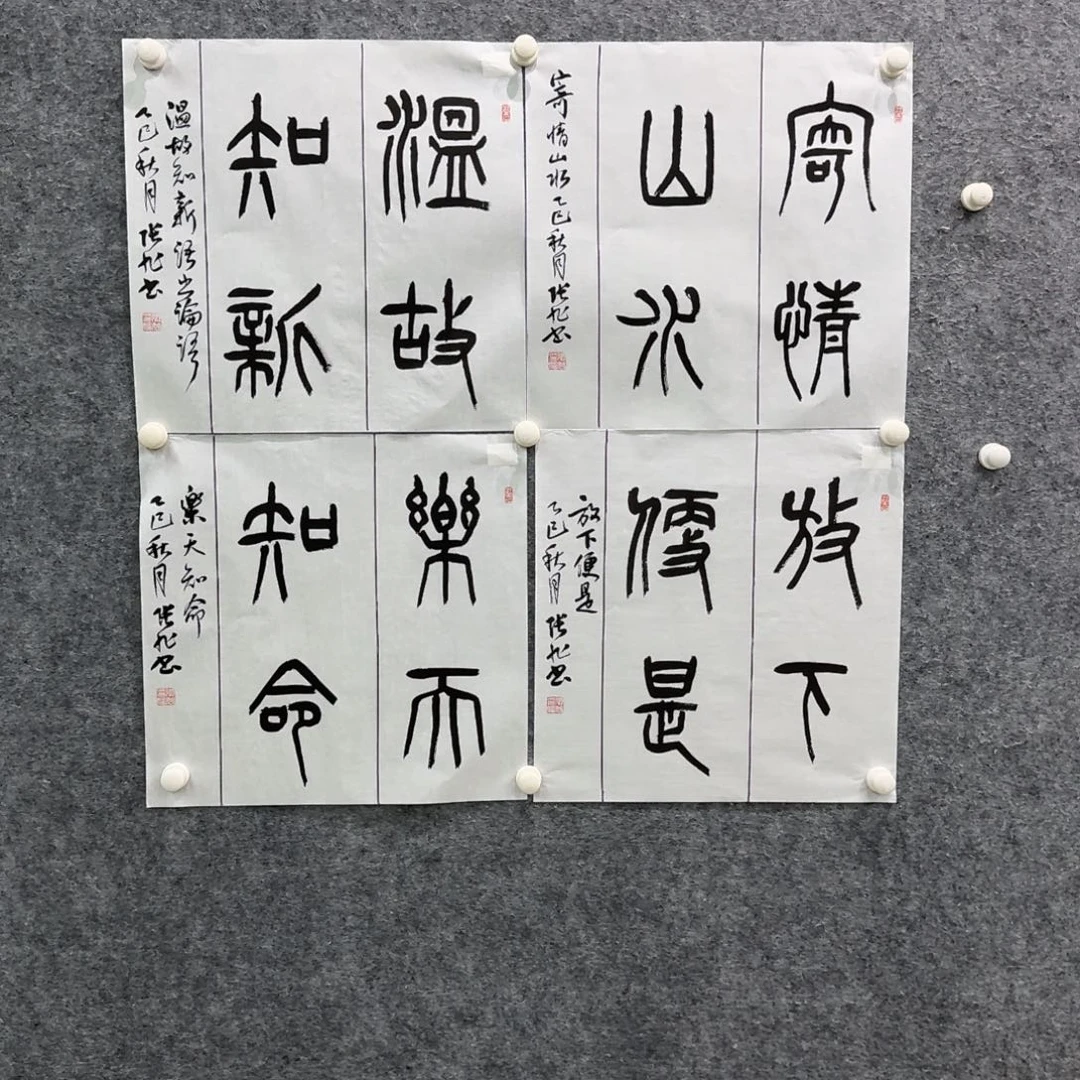 寄情
山水
寄情山水乙巳秋月张书
溫故
知新
温故知新语出論语
乙巳秋月张书
放下
便是
放下便是
乙巳秋月张书
樂天
知命
樂天知命
乙巳秋月张书